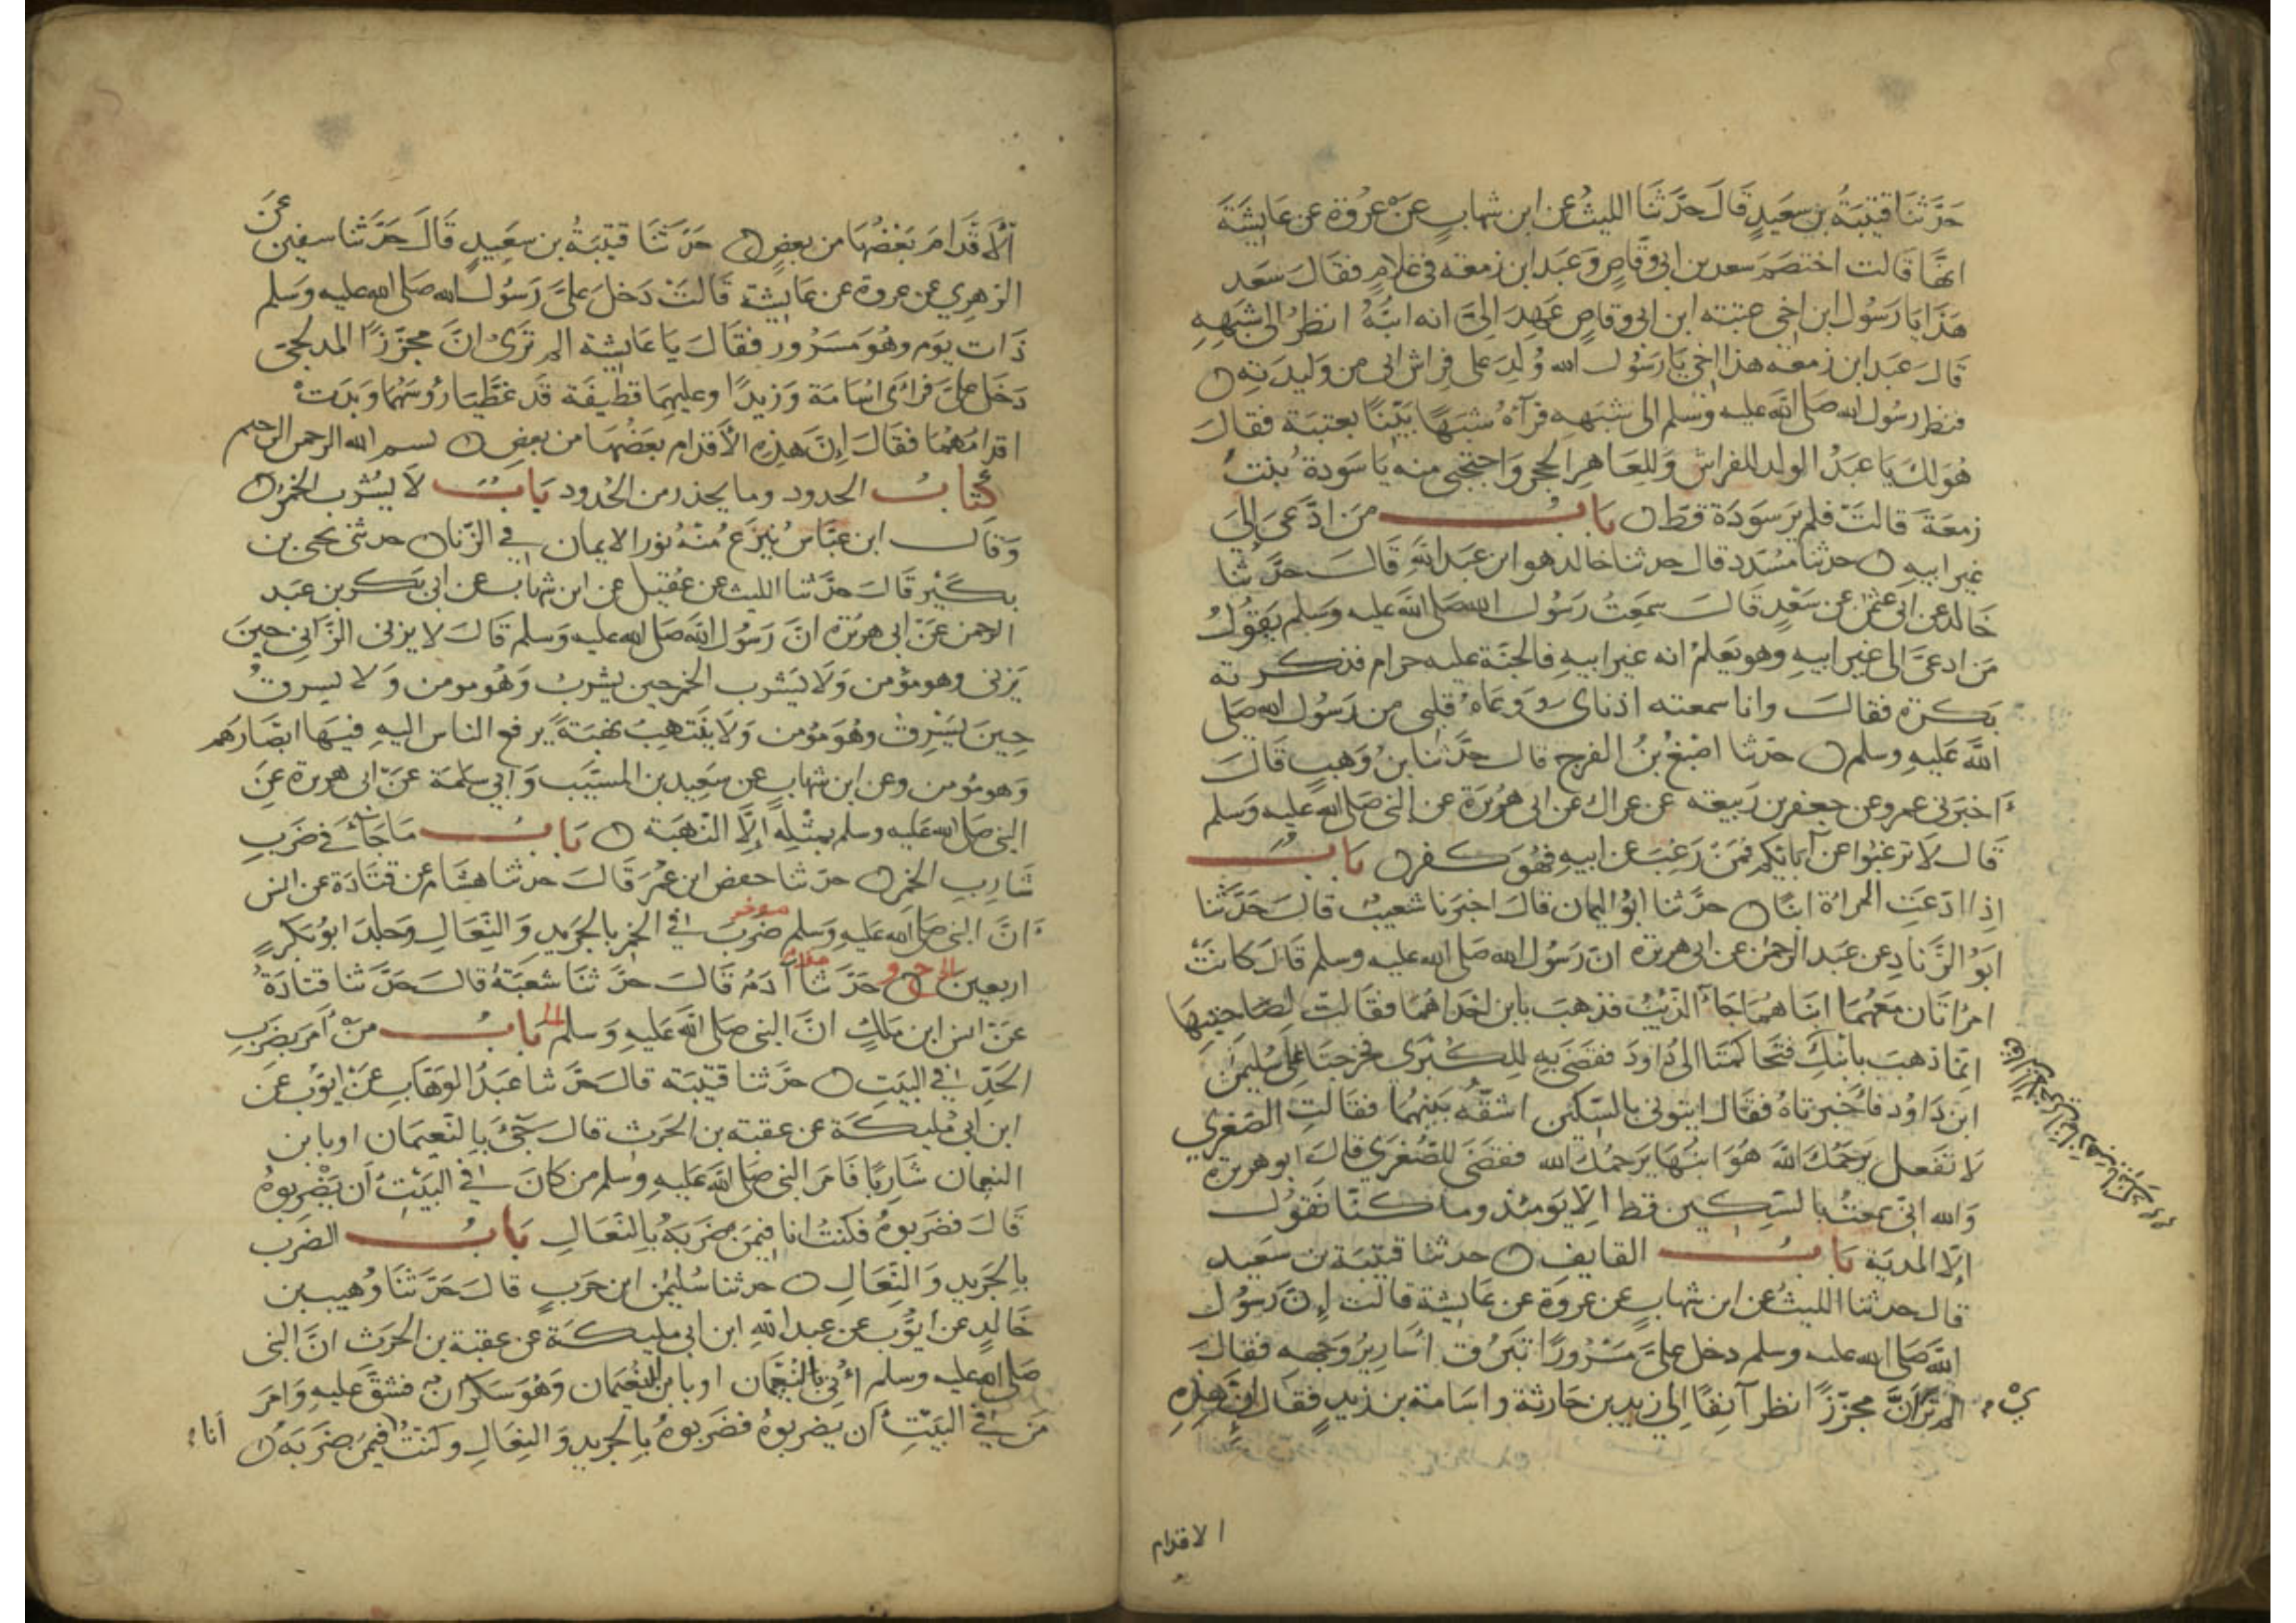 حَدَّثنَا قتيبَةُ بن سعَيدٍ قَالَ حدَّثنا الليثُ عَن ابن شهابٍ عَنْ عُروَة عَن عَايشَةَ
انهَّا قالت اختصَمَ سعد بن ابى وقَّاصٍ وَعَبد ابن زمعَه فى غلامٍ فقالَ سَعد
هَذَا يَا رَسُول ابن اخى عتبَته ابن ابى وقاصٍ عَهِدَ الىَّ انه ابنُهُ انظرُ الى شبَهِهِ
قالَ عَبد ابن زمعَه هذا اخى يَا رَسُول الله وُلِدَ على فِراش ابى من وَليدَتِهِ
فنظر رسُول الله صَلى الله عليه وَسلم الى شبَههِ فرَآهُ شبَهًا بَيِّنًا بعتبَة فقالَ
هُوَلكَ يَا عَبدُ الولد للفراشِ وَللِعَاهِر الحجر وَاحتجبى منه يَا سَودة بنت
زمعَةَ قالتْ فلم يرَ سَودَة قَط بَابُ مَن ادَّعىَ الىَ
غير ابيهِ حدثنا مُسَدد قال حدثنا خالد هو ابن عَبد الله قالَ حَدَّثنا
خَالد عن ابى عثمن عَن سَعْدٍ قَالَ سمعَتُ رَسُول الله صَلى الله عليه وَسَلم يَقوُلُ
مَن ادعىَّ الى غير ابيهِ وهو يَعلمُ انه غير ابيهِ فالجنَّة عليهِ حرام فذكرته
بَكرَة فقالَ وانا سمعته اذناى وَوَعَاهُ قلبى من رَسُول الله صَلى
اللهُ عَليهِ وسلم حدّثنا اصْبَغُ بنُ الفرج قال حدَّثنا بنُ وَهبٍ قالَ
اخبَرنى عمرو عن جعفر بن رَبيعَه عن عراك عن ابى هُرَيرَة عَن النبى صَلى الله عليهِ وسَلم
قَال لاَ ترغبُوا عن آبَائِكم فمَنْ رَغِبَ عن ابيهِ فهُوَ كفر بَابُ
اِذا ادعَتِ المراة ابنًا حدَّثنا ابوُ اليمان قالَ اخبَرنا شعيبٌ قالَ حَدَّثنا
ابَوُ الزنادِ عن عَبد الرحمن عَن ابى هريرة انّ رَسُول الله صَلى الله عليه وسلم قَالَ كانتْ
امرُاتَان مَعَهُمَا ابنَاهُمَا جَاءَ الذئبُ فذهبَ بابن احَداهُمَا فقالتْ لصَاحبتِهَا
انمّا ذهَبَ بابنكِ فتحَاكمتَا الى دَاودَ ففضَى بهِ للِكبْرَى فخرجتَا على سُليمَن
ابن دَاوُد فاخَبرتاهُ فقال ايتونى بالسّكينِ اشقّه بَينهُمَا فقالتِ الصغرى
لاَ تفعَل يَرحَمُكَ الله هُوَ ابنُهَا يَرحَمُكَ الله ففضَى للِصُّغرَى قالَ ابو هريرة
وَالله ان سمعتُ بالسّكين قط الاِ يَومَئذٍ وما كنّا نقوُل
اِلا المديَة بَابُ القايف حدثنا قتيبَة بن سَعَيد
قال حدثنا الليثُ عَن ابن شهاب عَن عروَة عن عَايشة قالت اِنّ رَسُول
اللهِ صَلى الله عليه وسلم دخل علىَّ مَسْرُورًا تبَرُق اسَاريرُ وَجههِ فقالَ
الم ترَ اَنَّ مجزّزً انظر آنِفًا اِلى زيد بن حَارثة وَاسَامة بن زيدٍ فقال اِنَّ هَذِهِ
الاقدام
اَلأقدَامَ بَعْضُهَا من بعضٍ حَدَّثنَا قتيبَةُ بن سعَيدٍ قَالَ حَدَّثنا سفين عَنَ
الزهرِى عن عروة عَن عَايشة قَالتْ دَخلَ علىَّ رَسُول الله صَلى الله عليه وَسَلم
ذَات يَوم وهُوَ مَسرُور فقَالَ يَا عَايشَة الم ترَىْ انَّ مجزّزًا المدلجىّ
دَخَل علىَّ فرَاىَ اسُامَة وَزيدًا وعليهمَا قطيفَة قَد غَطَّيَا رُوسَهُما وَبَدَتْ
اقدامُهُمَا فقالَ اِنَّ هَذِه الأقدام بعَضُهَا من بعضٍ بسم الله الرحمن الرحيم
كتابُ الحدود وما يحذر من الحُدود بَابُ لاَ يُشْرَب الخَمرُ
وَقال ابن عَبَّاس يُنزَع مُنْهُ نور الايمان فى الزّنا حدثنى يحيى بن
بكيْر قالَ حَدَّثنا الليث عن عُقيل عن ابن شهاب عن ابى بَكر بن عَبد
الرحمن عَنْ ابى هريرة انَّ رَسُول الله صَلى الله عليه وَسلم قَالَ لا يزنى الزّانى حِينَ
يَزنى وهو مؤمن وَلاَ يَشرب الخمر حين يشربُ وَهُو مومن وَلا يسرقُ
حِينَ يَسْرِقُ وهُوَ مؤمن وَلاَ ينَتهِبُ نهبَةً يرفع الناس اليهِ فيهَا ابصَارَهُم
وَهو مؤمن وعن ابن شهاب عن سَعِيد بن المسيَّب وَابى سلمَة عَنْ ابى هريرة عَنِ
النبى صَلى الله عَليه وسلم بمثلِهِ اِلَّا النهبَة بَابُ مَا جَاءَ فى ضرَبِ
شَارِبِ الخَمر حدثنا حفص ابن عُمَر قَالَ حدثنا هشام عن قتادَة عن انس
انَّ النبى صَلى الله عَليهِ وَسَلم ضرَبَ فى الخمر بالجريد وَالنِعَالِ وَجلدَ ابوُ بَكرٍ
اربعين حَدَّثنا آدَمُ قَالَ حدَّثنَا شعَبَة قالَ حَدَّثنا قتادَةُ
عَن انس ابن مٰلكٍ انَّ النبى صَلى الله عَليهِ وَسَلم بَابُ منْ اَمَر بضرَبِ
الحَدِّ فى البَيتِ حَدَّثنا قتيبَة قالَ حَدَّثنا عبَدُ الوَهَّابِ عَنْ ايوّب عَن
ابن ابى مُليكَة عن عقبَة بن الحرَث قالَ جئَ بالنعُيمَان او بابن
النعيمان شَارِبًا فَامَر النبى صَلى الله عَليهِ وسلم من كانَ فى البَيْتِ اَن يَضْربوهُ
قَالَ فضَربوهُ فكنتُ انا فيمَن ضرَبَهُ بالنعَالِ بَابُ الضرَب
بالجَريدِ وَالنِعَالِ حدثنا سُليمٰن ابن حَربٍ قالَ حَدَّثنَا وُهيب بن
خَالدٍ عَن ايوُّب عن عبد اللهِ ابن ابى مليكَة عن عقبَة بن الحَرث انَّ النبى
صَلى الله عليه وسلم اُتى بالنُعَيمان او بابن النعُيمَان وَهُوَ سَكران فشقَّ عَليهِ وَامرَ
مَن فى البَيْتِ اَن يضربوهُ فضَربوهُ بالجريد وَالنِعَالِ وكنتُ فيمَن ضَرَبَهُ